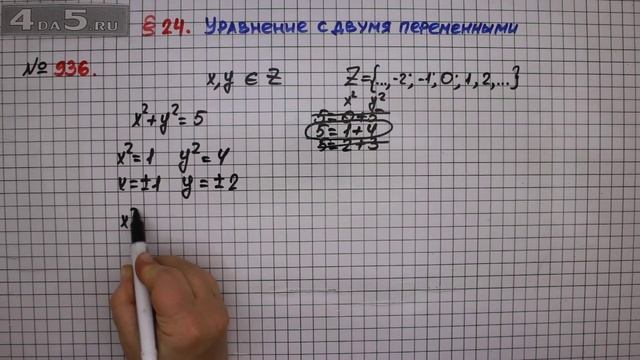 4DA5.RU
§ 24. Уравнение с двумя переменными
№ 936.
x, y ∈ Z
Z={...,-2; -1; 0; 1, 2,...}
x² y²
5=0+5
5=1+4
5=2+3
x²+y²=5
x²=1 y²=4
x=±1 y=±2
x²